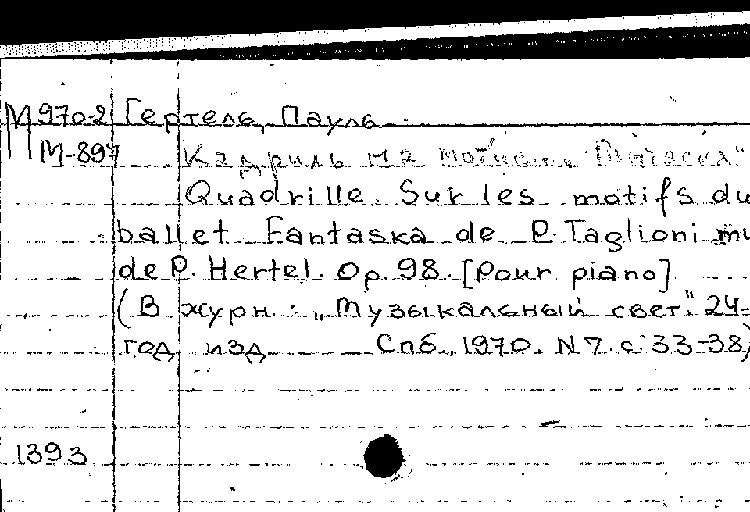 М 970-2 Гертель, Пауль.
М-897 Кадриль на мотивы "Фантаска"
Quadrille. Sur les motifs du
ballet Fantaska de P. Taglioni mu
de P. Hertel. Op. 98. [Pour piano]
(В журн.: „Музыкальный свет." 24-
год изд Спб., 1970. N 7. с. 33-38)
1393